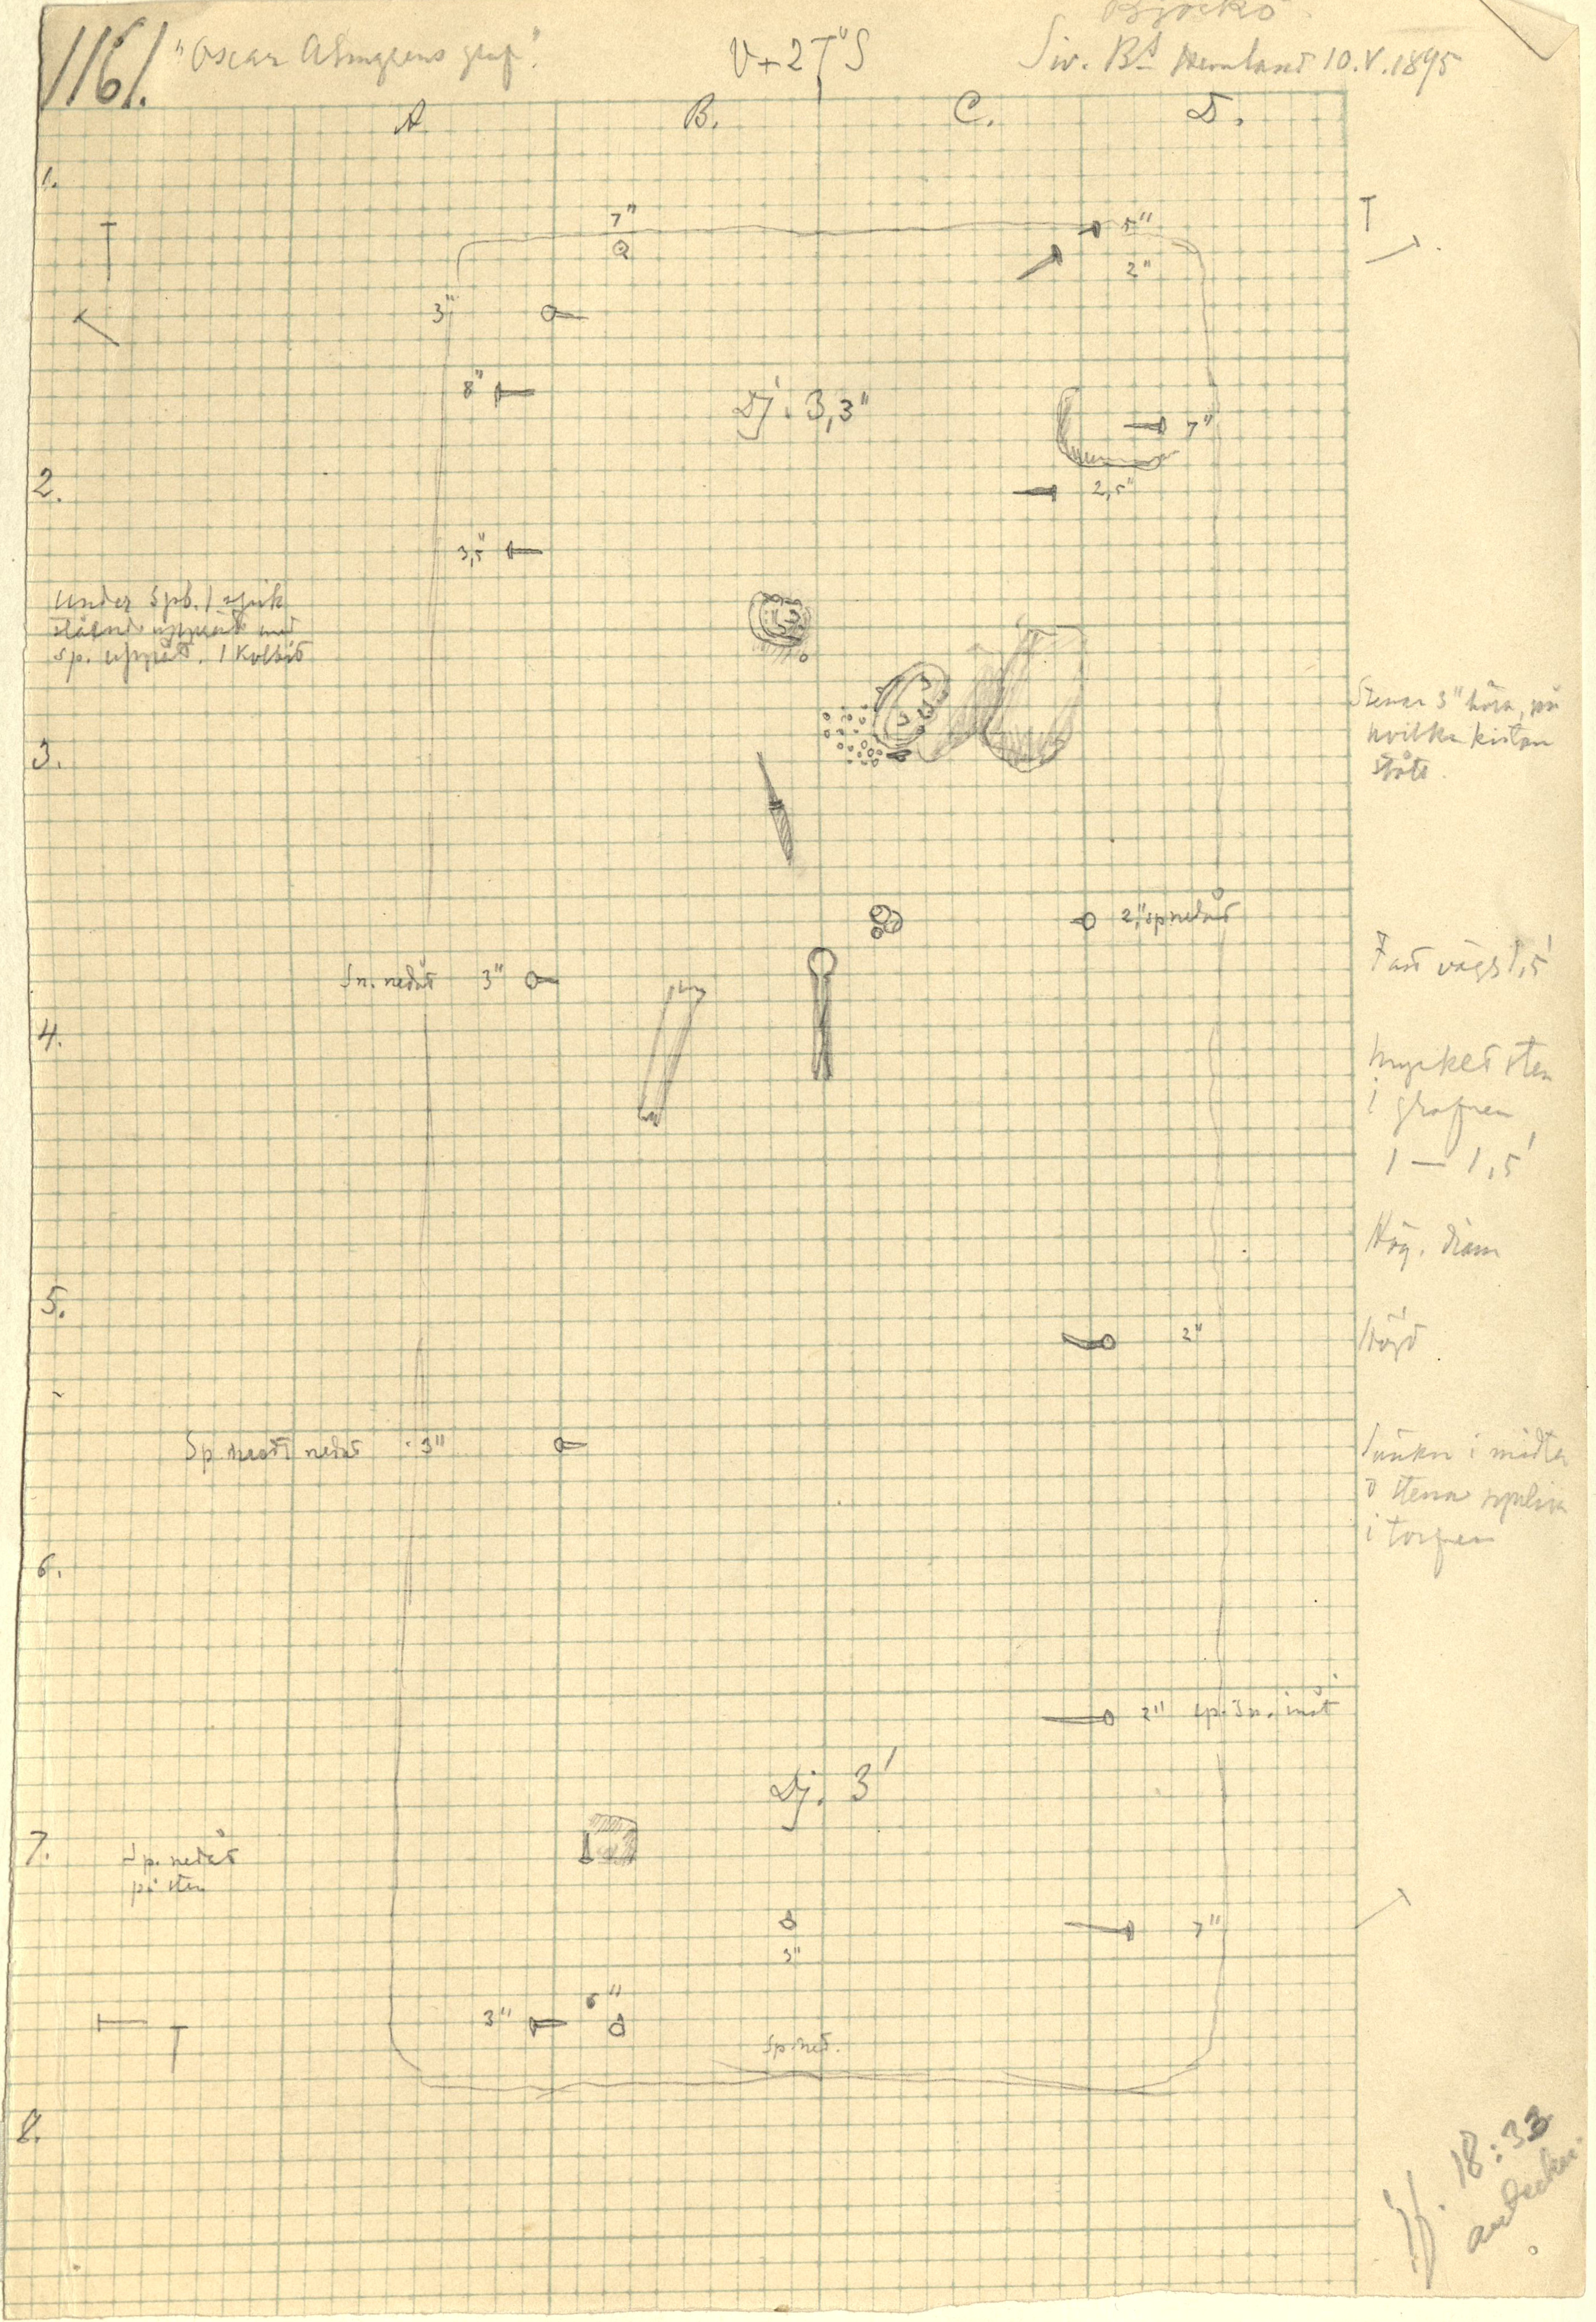 Björkö.
1161. "Oscar Almgrens graf".
V+2T"S
Siv. Bd Hemland 10.V.1895
A. B. C. D.
1.
7"
5"
2"
3"
8"
Dj. 3,3"
7"
2.
2,5"
3,5"
Under Spb. 1 spik
sp. uppåt. 1 kolbit
Stenar 3" höga, på
hvilka kistan
stått.
3.
2", sp nedåt
Sn. nedåt 3"
1,5'
4.
Mycket sten
i grafven
1 — 1,5'
Hög. diam
5.
Höjd
2"
Sp snedt nedåt 3"
i midten
o stenar synliga
i torfven
6.
2" sp. sn. inåt
Dj. 3'
7.
Sp. nedåt
på sten
7"
3"
6"
3"
Sp. ned.
8.
Jf. 18:33